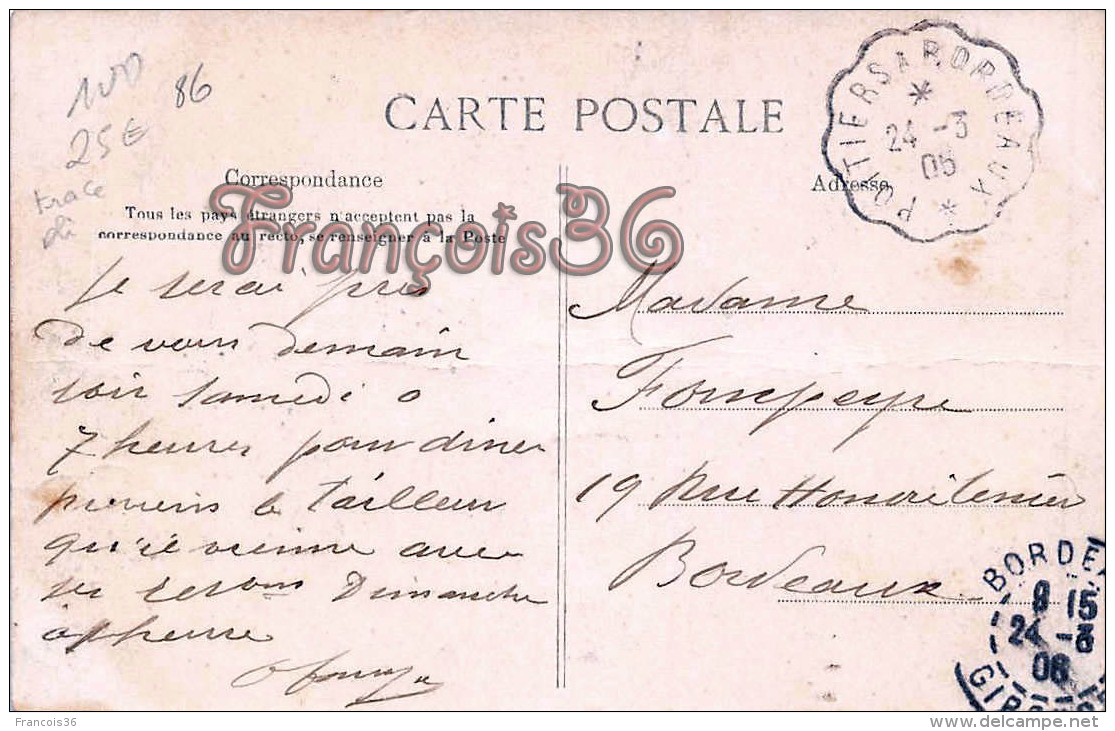 100
86
25€
trace
CARTE POSTALE
POITIERS A BORDEAUX
24 -3
06
Correspondance
Adresse
Tous les pays étrangers n'acceptent pas la
correspondance au recto, se renseigner à la Poste
François36
Je serai près
de vous demain
soir samedi a
7 heures pour diner
previens le Tailleur
qu'il vienne avec
Dimanche
Madame
Fompeyre
19 Rue
Bordeaux
BORDE
8 15
24 -3
06
GIR
Francois36
delcampe.net